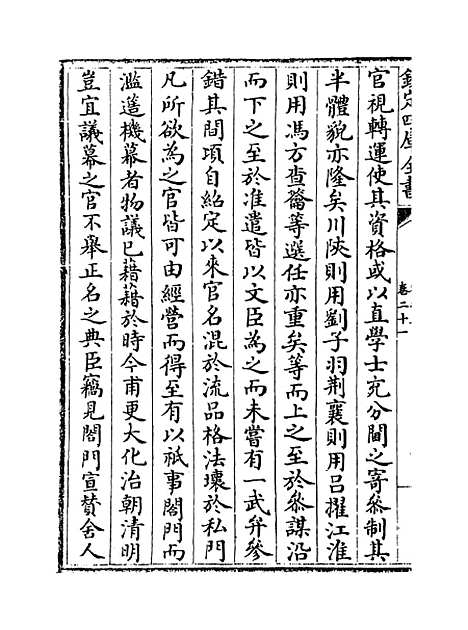 欽定四庫全書
卷二十一
官視轉運使其資格或以直學士充分閫之寄叅制其
半體貌亦隆矣川陜則用劉子羽荆襄則用吕擢江淮
則用馮方查籥等選任亦重矣等而上之至於叅謀沿
而下之至於准遣皆以文臣為之而未嘗有一武弁參
錯其間項自紹定以來官名混於流品格法壞於私門
凡所欲為之官皆可由經營而得至有以祇事閤門而
濫簉機幕者物議已藉藉於時今甫更大化治朝清明
豈宜議幕之官不舉正名之典臣竊見閤門宣賛舍人